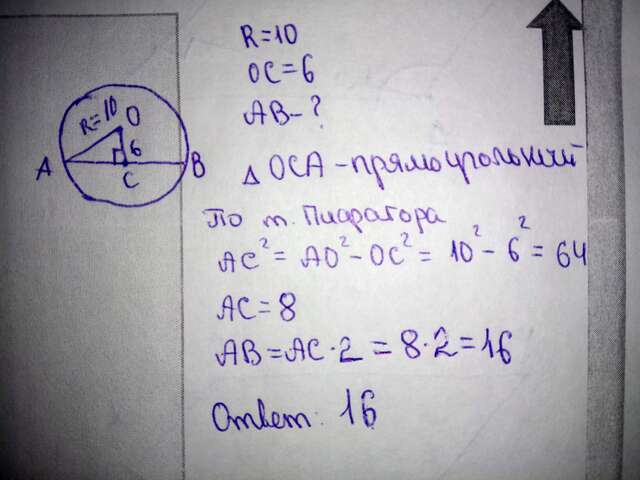 R=10
OC=6
AB-?
R=10
O
6
A
B
C
△ OCA - прямоугольный
По т. Пифагора
AC² = AO² - OC² = 10² - 6² = 64
AC = 8
AB = AC · 2 = 8 · 2 = 16
Ответ: 16